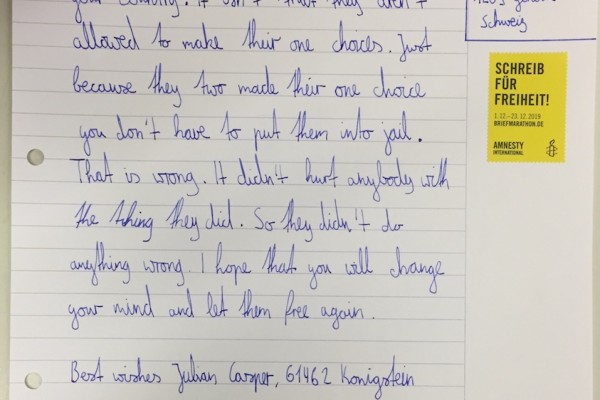 allowed to make their one choices. Just
because they two made their one choice
you don't have to put them into jail.
That is wrong. It didn't hurt anybody with
the thing they did. So they didn't do
anything wrong. I hope that you will change
your mind and let them free again.
Best wishes Julian Casper, 61462 Konigstein
Schweiz
SCHREIB
FÜR
FREIHEIT!
1.12.–23.12.2019
BRIEFMARATHON.DE
AMNESTY
INTERNATIONAL